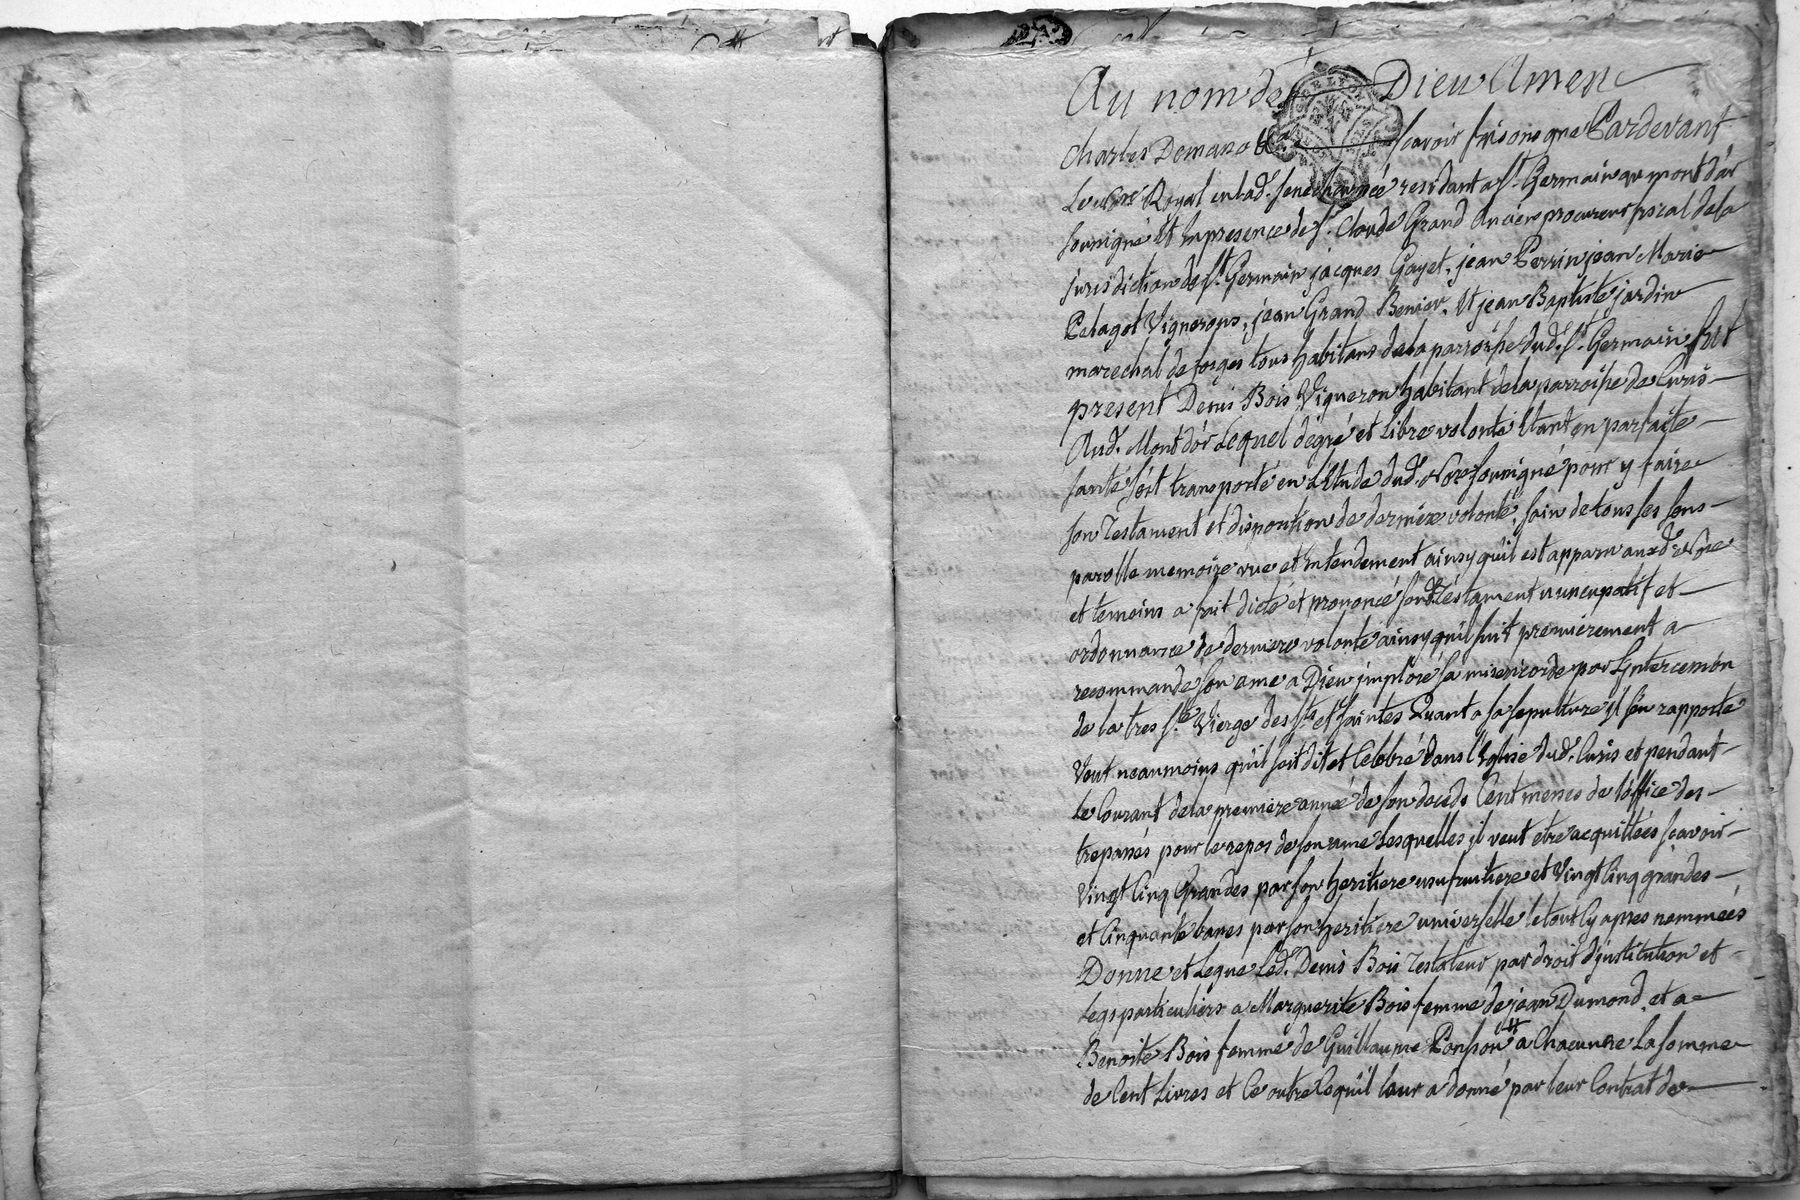 Au nom de Dieu Amen
Charles Demano &c. scavoir faisons que Pardevant
Le Nore Royal en lad. senechaussée residant a St. Germain au mont d'or
soussigné Et En presence de Sr. Claude Grand Ancien procureur fiscal de la
jurisdiction de St. Germain jacques Gayet, jean Perrin jean Marie
Pelagot Vignerons, jean Grand Benier, Et jean Baptiste jardin
marechal de forges tous habitans de la parroisse dud. St. Germain fut
present Denis Bois Vigneron habitant de la parroisse de Curis
Aud. Mont d'or Lequel de gré et Libre volonté Etant en parfaite
santé s'est transporté en L'Etude dud. Nore soussigné pour y faire
son Testament et disposition de derniere volonté, sain de tous ses sens
parolle memoire vue et Entendement ainsy qu'il est apparu auxd. Nre
et temoins a fait dicté et prononcé son Testament nuncupatif et
ordonnance de derniere volonté ainsy qu'il suit premierement a
recommandé son ame a Dieu imploré sa misericorde par L'intercession
de la tres Ste. Vierge des Sts. et saintes Quant a sa sepulture il s'en rapporte
Veut neanmoins qu'il soit dit et Celebré dans l'Eglise dud. Curis et pendant
Le Courant de la premiere année de son deceds Cent messes de l'office des
trepassés pour le repos de son ame Lesquelles il veut etre acquittées scavoir
Vingt Cinq Grandes par son heritiere usufruitiere et Vingt Cinq grandes
et Cinquante basses par son heritiere universelle le tout Cy apres nommées
Donne et Legue Led. Denis Bois Testateur par droit d'institution et
Legs particuliers a Marguerite Bois femme de jean Dumond, et a
Benoite Bois femme de Guillaume Ponson a Chacunne La somme
de Cent Livres et Ce outre Ce qu'il leur a donné par leur Contrat de